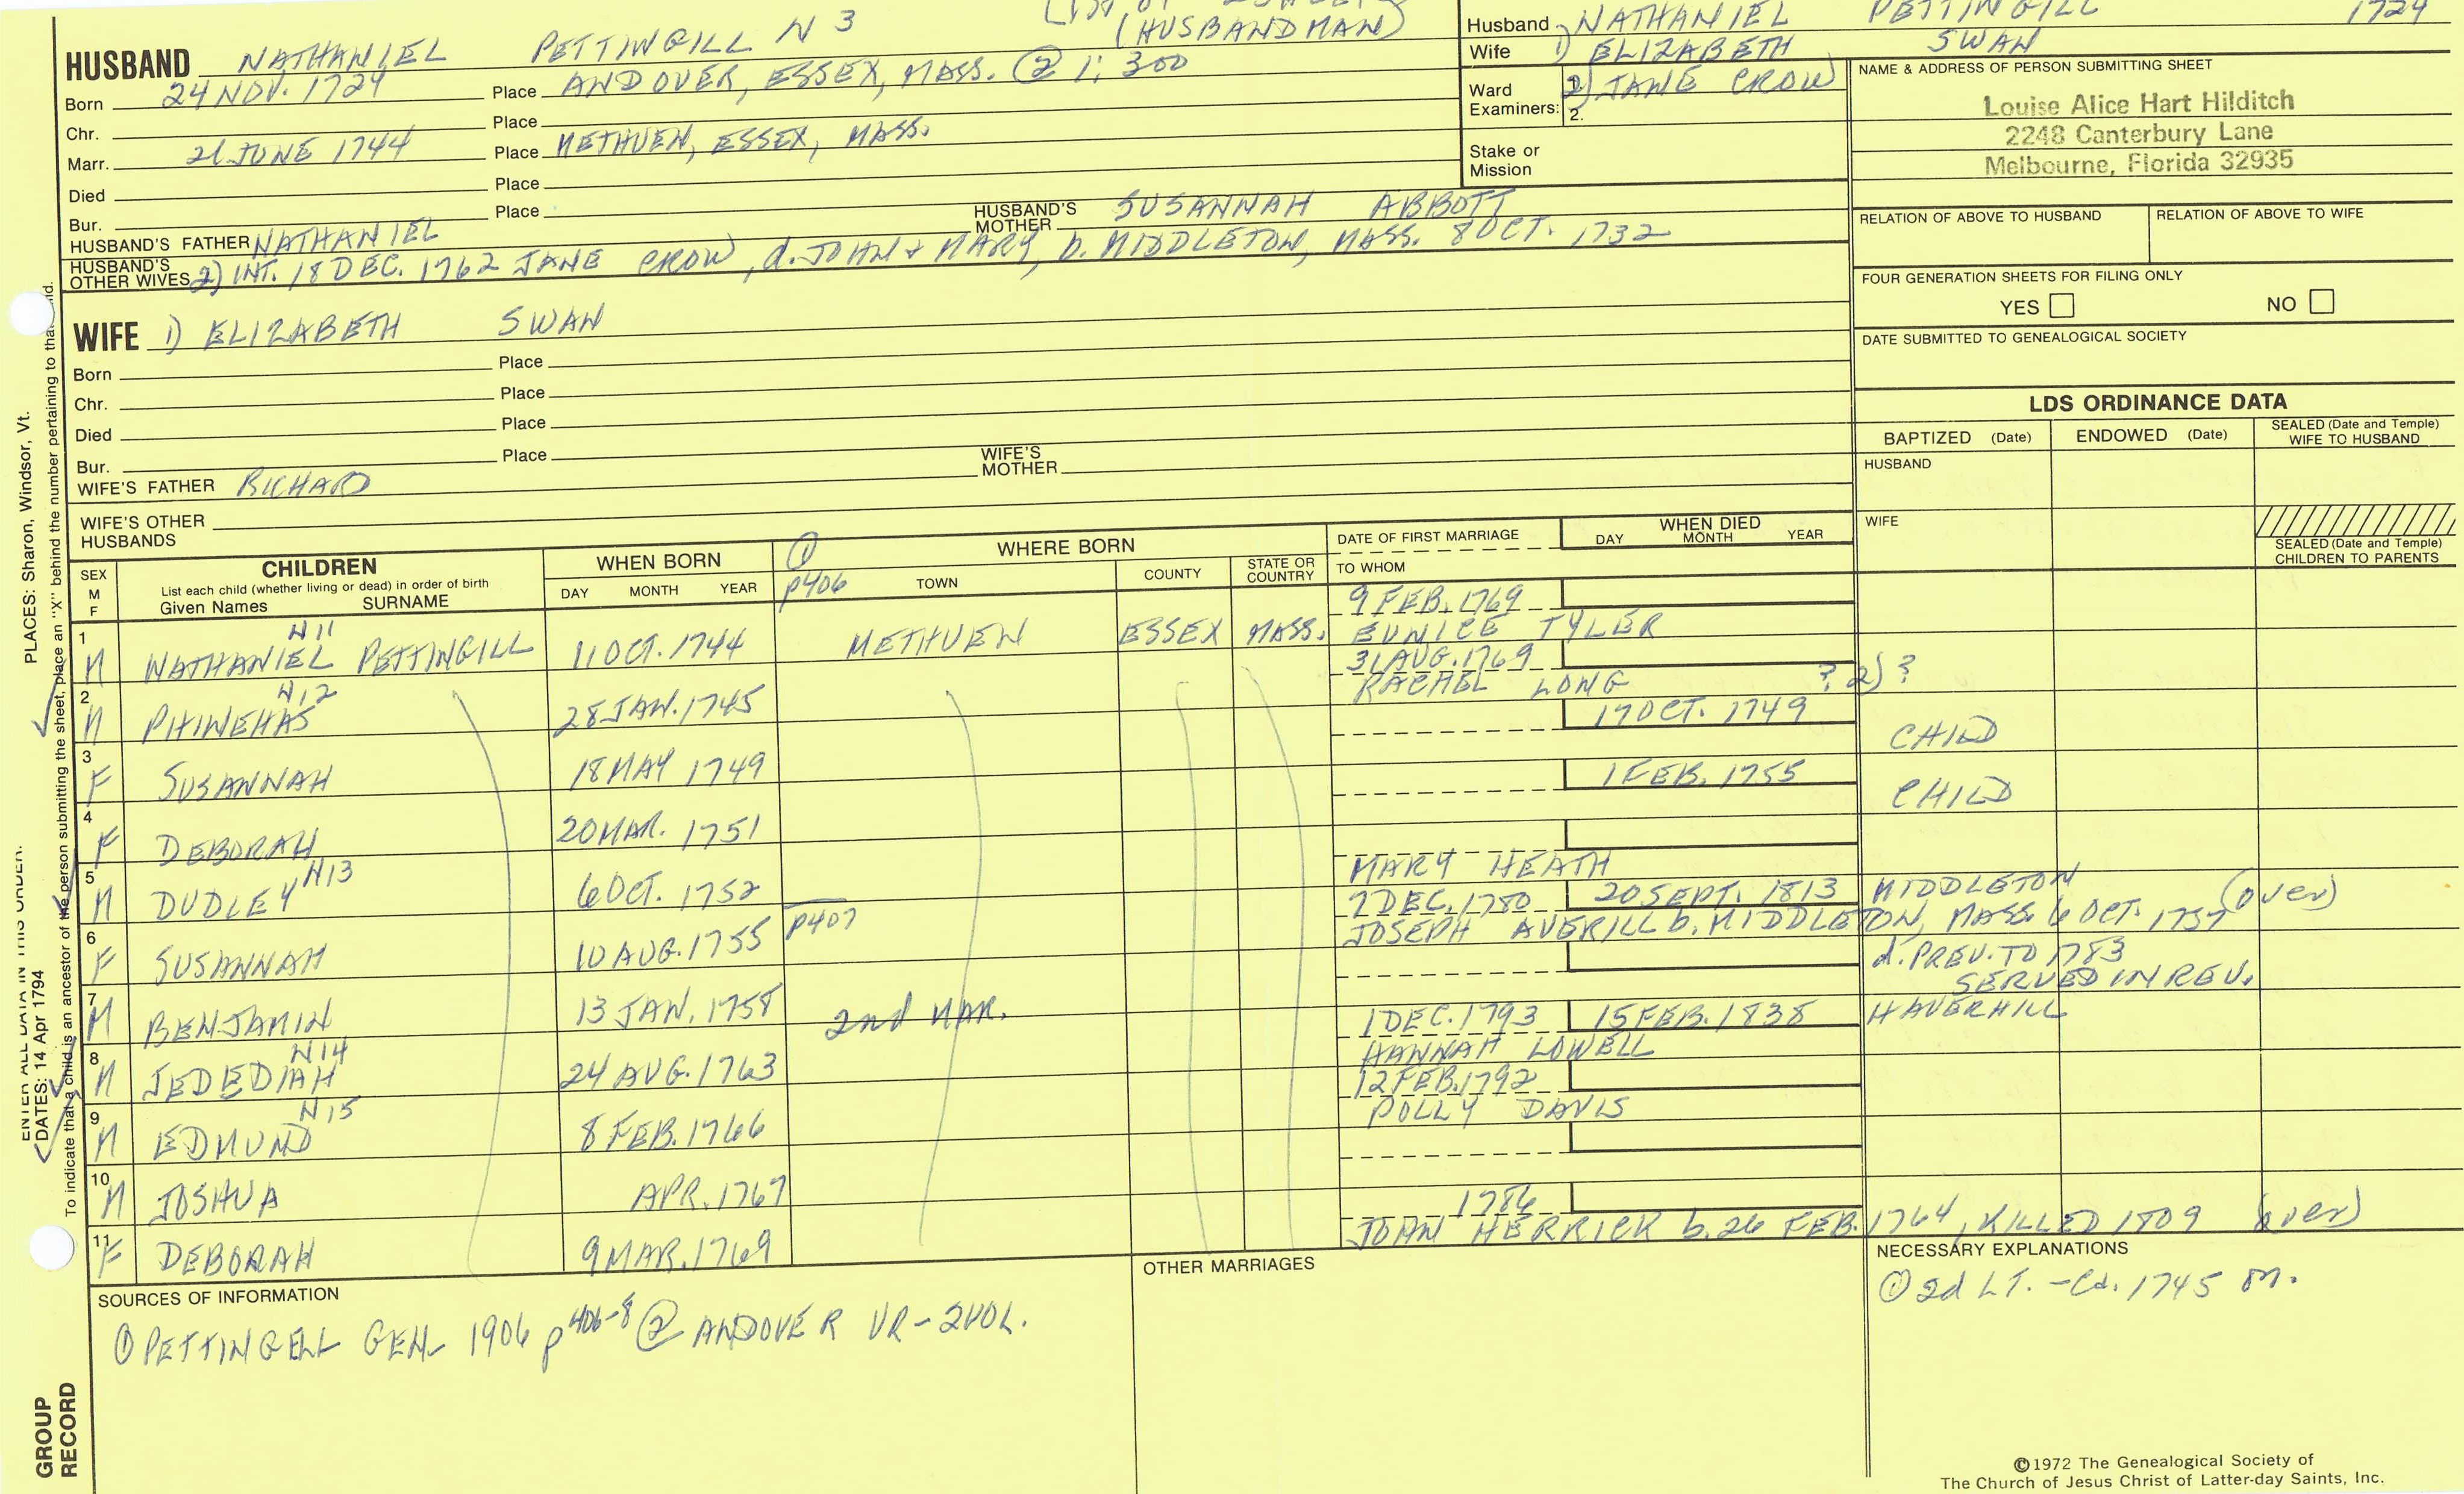 (HUSBANDMAN)
HUSBAND NATHANIEL PETTINGILL N 3
Born 24 NOV. 1724 Place ANDOVER, ESSEX, MASS. ② 1; 300
Chr. Place
Marr. 21 JUNE 1744 Place METHUEN, ESSEX, MASS.
Died Place
Bur. Place
HUSBAND'S FATHER NATHANIEL HUSBAND'S MOTHER SUSANNAH ABBOTT
HUSBAND'S OTHER WIVES 2) INT. 18 DEC. 1762 JANE CROW, d. JOHN & MARY, b. MIDDLETON, MASS. 8 OCT. 1732
Husband NATHANIEL PETTINGILL 1724
Wife 1) ELIZABETH SWAN
Ward Examiners: 1. 2) JANE CROW
2.
Stake or Mission
NAME & ADDRESS OF PERSON SUBMITTING SHEET
Louise Alice Hart Hilditch
2248 Canterbury Lane
Melbourne, Florida 32935
RELATION OF ABOVE TO HUSBAND RELATION OF ABOVE TO WIFE
FOUR GENERATION SHEETS FOR FILING ONLY
YES NO
DATE SUBMITTED TO GENEALOGICAL SOCIETY
WIFE 1) ELIZABETH SWAN
Born Place
Chr. Place
Died Place
Bur. Place
WIFE'S FATHER RICHARD WIFE'S MOTHER
WIFE'S OTHER HUSBANDS
LDS ORDINANCE DATA
BAPTIZED (Date) ENDOWED (Date) SEALED (Date and Temple) WIFE TO HUSBAND
HUSBAND
WIFE
SEALED (Date and Temple) CHILDREN TO PARENTS
SEX M F
CHILDREN
List each child (whether living or dead) in order of birth
Given Names SURNAME
WHEN BORN
DAY MONTH YEAR
① p406
WHERE BORN
TOWN COUNTY STATE OR COUNTRY
DATE OF FIRST MARRIAGE
TO WHOM
WHEN DIED
DAY MONTH YEAR
1 M NATHANIEL PETTINGILL N11 11 OCT. 1744 METHUEN ESSEX MASS. 9 FEB. 1769 EUNICE TYLER
2 M PHINEHAS N12 28 JAN. 1745 31 AUG. 1769 RACHEL LONG ? 2) ?
3 F SUSANNAH 18 MAY 1749 17 OCT. 1749 CHILD
4 F DEBORAH 20 MAR. 1751 1 FEB. 1755 CHILD
5 M DUDLEY N13 6 OCT. 1752 MARY HEATH
6 F SUSANNAH 10 AUG. 1755 p407 7 DEC. 1780 20 SEPT. 1813 MIDDLETON (over)
JOSEPH AVERILL b. MIDDLETON, MASS. 6 OCT. 1757
7 M BENJAMIN 13 JAN. 1758 d. PREV. TO 1783
SERVED IN REV.
2nd MAR.
8 M JEDEDIAH N14 24 AUG. 1763 1 DEC. 1793 15 FEB. 1838 HAVERHILL
HANNAH LOWELL
9 M EDMUND N15 8 FEB. 1766 12 FEB. 1792 POLLY DAVIS
10 M JOSHUA APR. 1767
11 F DEBORAH 9 MAR. 1769 1786
JOHN HERRICK b. 26 FEB. 1764, KILLED 1809 (over)
SOURCES OF INFORMATION
① PETTINGELL GEN. 1906 p406-8 ② ANDOVER VR - 2 VOL.
OTHER MARRIAGES
NECESSARY EXPLANATIONS
① 2d LT. - Ca. 1745 m.
©1972 The Genealogical Society of
The Church of Jesus Christ of Latter-day Saints, Inc.
PLACES: Sharon, Windsor, Vt.
ENTER ALL DATA IN THIS ORDER:
DATES: 14 Apr 1794
To indicate that a child is an ancestor of the person submitting the sheet, place an "X" behind the number pertaining to that child.
GROUP
RECORD